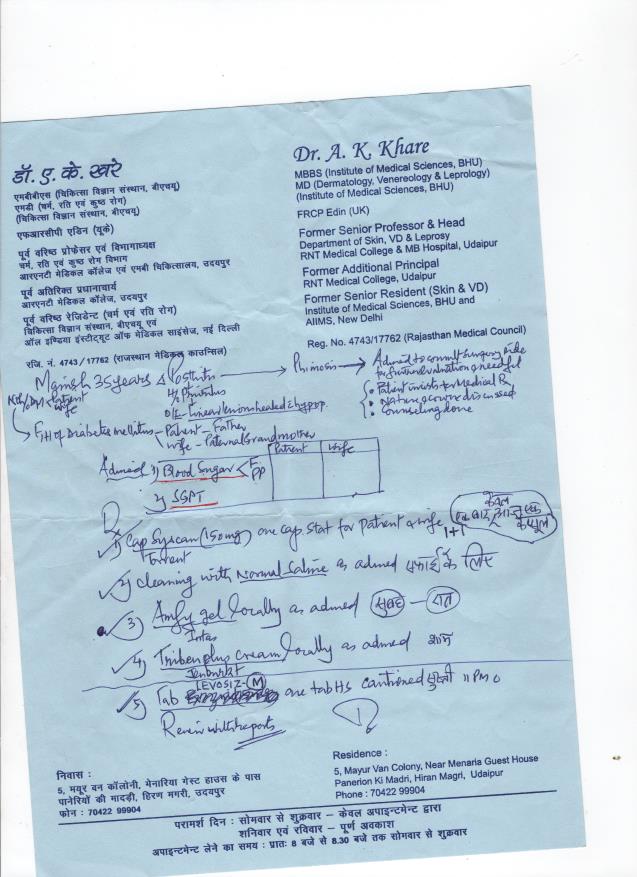 डॉ. ए. के. खरे
एमबीबीएस (चिकित्सा विज्ञान संस्थान, बीएचयू)
एमडी (चर्म, रति एवं कुष्ठ रोग)
(चिकित्सा विज्ञान संस्थान, बीएचयू)
एफआरसीपी एडिन (यूके)
पूर्व वरिष्ठ प्रोफेसर एवं विभागाध्यक्ष
चर्म, रति एवं कुष्ठ रोग विभाग
आरएनटी मेडिकल कॉलेज एवं एमबी चिकित्सालय, उदयपुर
पूर्व अतिरिक्त प्रधानाचार्य
आरएनटी मेडिकल कॉलेज, उदयपुर
पूर्व वरिष्ठ रेजिडेन्ट (चर्म एवं रति रोग)
चिकित्सा विज्ञान संस्थान, बीएचयू एवं
ऑल इण्डिया इंस्टीट्यूट ऑफ मेडिकल साइंसेज, नई दिल्ली
रजि. नं. 4743/17762 (राजस्थान मेडिकल काउन्सिल)
Dr. A. K. Khare
MBBS (Institute of Medical Sciences, BHU)
MD (Dermatology, Venereology & Leprology)
(Institute of Medical Sciences, BHU)
FRCP Edin (UK)
Former Senior Professor & Head
Department of Skin, VD & Leprosy
RNT Medical College & MB Hospital, Udaipur
Former Additional Principal
RNT Medical College, Udaipur
Former Senior Resident (Skin & VD)
Institute of Medical Sciences, BHU and
AIIMS, New Delhi
Reg. No. 4743/17762 (Rajasthan Medical Council)
Manish 35 years Posthitis Phimosis Advised to consult surgery side
for further evaluation & needful
Patient Wife
H/o Pruritus
Patient insists for Medical Rx
O/E - Linear lesions healed
Nature & course discussed
Counseling done
F/H of Diabetes mellitus - Patient - Father
Wife - Paternal Grandmother
Patient Wife
Advised 1) Blood Sugar F PP
2) SGPT
Rx
1) Cap Syscan (150mg) one cap stat for Patient & wife 1+1
केवल एक बार
Torrent
2) Cleaning with Normal Saline as advised सफाई के लिए
3) Amfy gel locally as advised सुबह - रात
Intas
4) Tribenplus cream locally as advised शाम
Jenburkt
5) Tab LEVOSIZ-M one tab HS cautioned सुस्ती
Review with reports
निवास :
5, मयूर वन कॉलोनी, मेनारिया गेस्ट हाउस के पास
पानेरियों की मादड़ी, हिरण मगरी, उदयपुर
फोन : 70422 99904
Residence :
5, Mayur Van Colony, Near Menaria Guest House
Panerion Ki Madri, Hiran Magri, Udaipur
Phone : 70422 99904
परामर्श दिन : सोमवार से शुक्रवार – केवल अपाइन्टमेन्ट द्वारा
शनिवार एवं रविवार – पूर्ण अवकाश
अपाइन्टमेन्ट लेने का समय : प्रातः 8 बजे से 8.30 बजे तक सोमवार से शुक्रवार